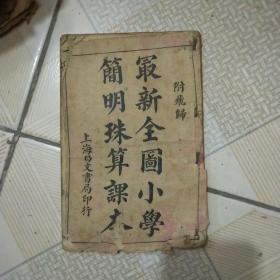 附飛歸
最新全圖小學
簡明珠算課本
上海昌文書局印行